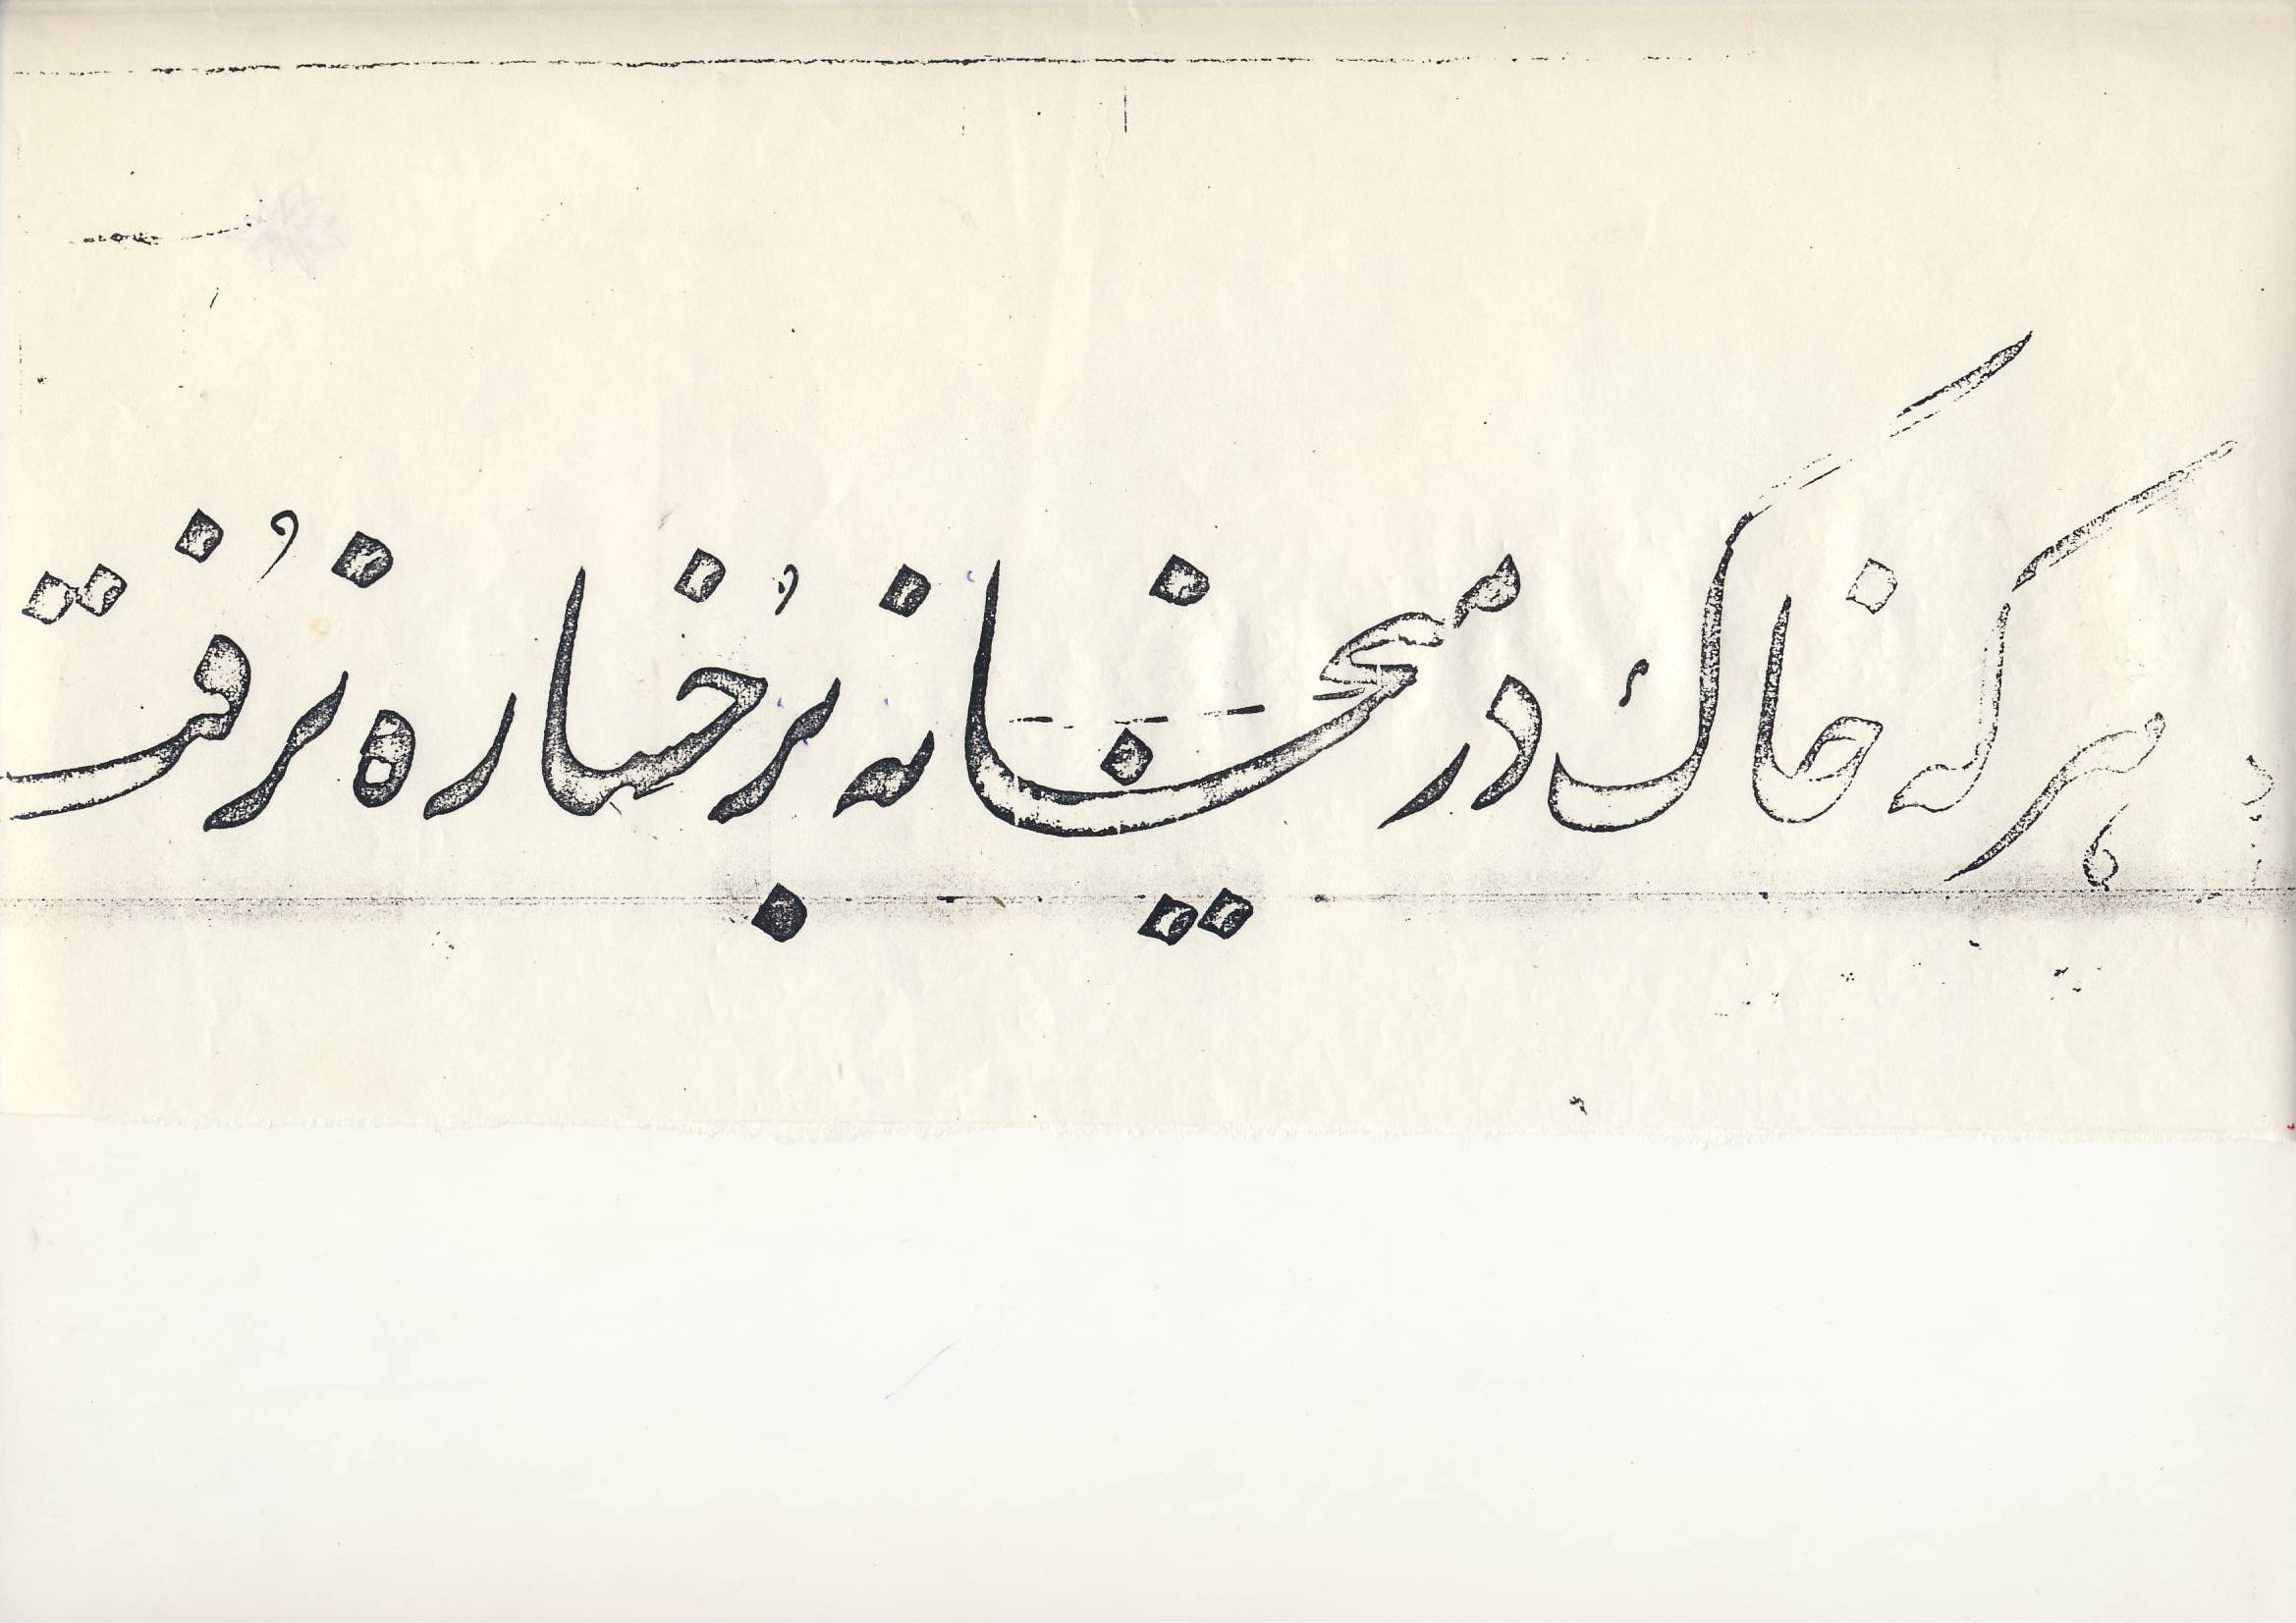 هر که خاک در میخانه برُخساره نرُفت